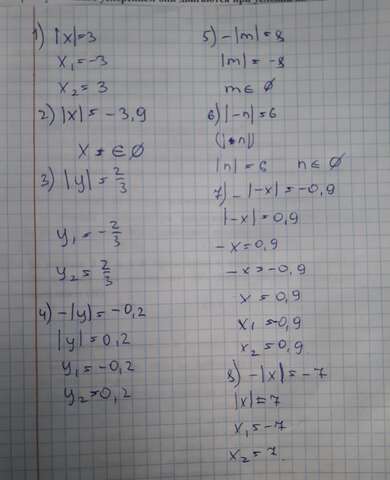 1) |x|=3
x₁=-3
x₂=3
2) |x|=-3,9
x=∈∅
3) |y|=2/3
y₁=-2/3
y₂=2/3
4) -|y|=-0,2
|y|=0,2
y₁=-0,2
y₂=0,2
5) -|m|=8
|m|=-8
m∈∅
6) |-n|=6
|n|=6 n∈∅
7) -|-x|=-0,9
|-x|=0,9
-x=0,9
-x=-0,9
x=0,9
x₁=-0,9
x₂=0,9
8) -|x|=-7
|x|=7
x₁=-7
x₂=7